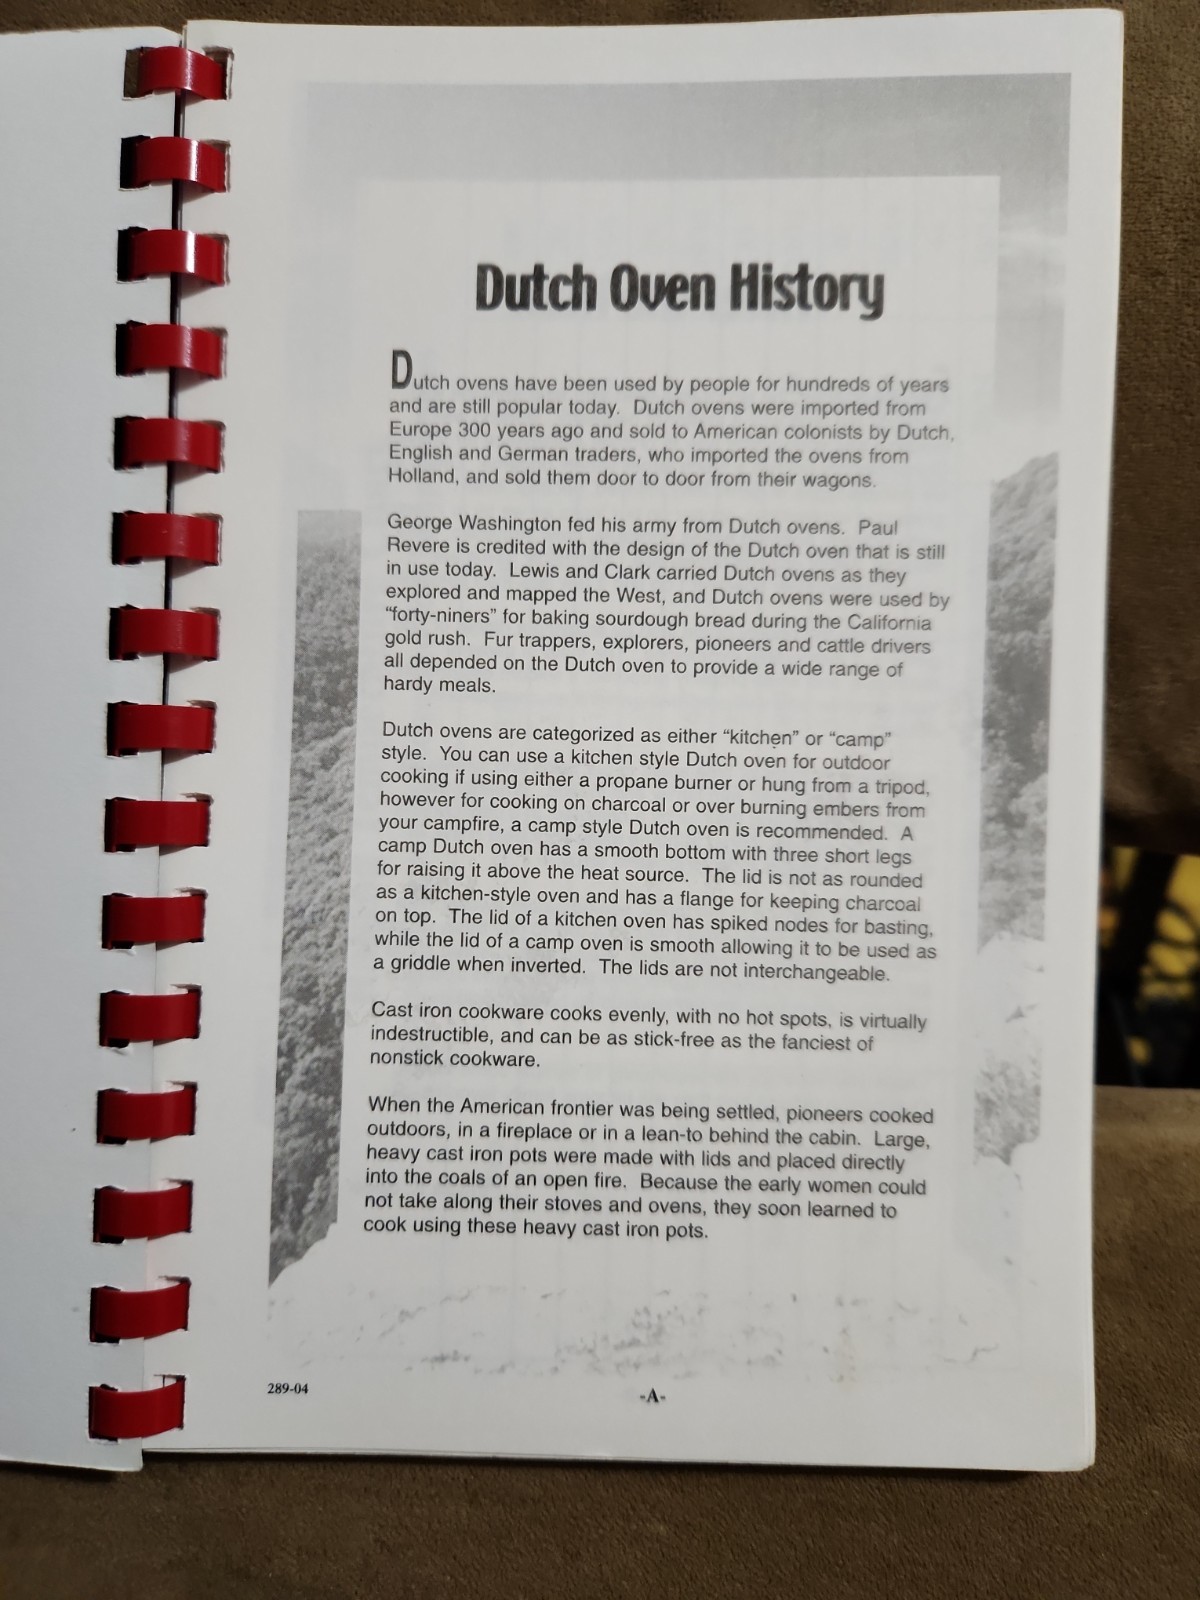 Dutch Oven History
Dutch ovens have been used by people for hundreds of years
and are still popular today.  Dutch ovens were imported from
Europe 300 years ago and sold to American colonists by Dutch,
English and German traders, who imported the ovens from
Holland, and sold them door to door from their wagons.
George Washington fed his army from Dutch ovens.  Paul
Revere is credited with the design of the Dutch oven that is still
in use today.  Lewis and Clark carried Dutch ovens as they
explored and mapped the West, and Dutch ovens were used by
“forty-niners” for baking sourdough bread during the California
gold rush.  Fur trappers, explorers, pioneers and cattle drivers
all depended on the Dutch oven to provide a wide range of
hardy meals.
Dutch ovens are categorized as either “kitchen” or “camp”
style.  You can use a kitchen style Dutch oven for outdoor
cooking if using either a propane burner or hung from a tripod,
however for cooking on charcoal or over burning embers from
your campfire, a camp style Dutch oven is recommended.  A
camp Dutch oven has a smooth bottom with three short legs
for raising it above the heat source.  The lid is not as rounded
as a kitchen-style oven and has a flange for keeping charcoal
on top.  The lid of a kitchen oven has spiked nodes for basting,
while the lid of a camp oven is smooth allowing it to be used as
a griddle when inverted.  The lids are not interchangeable.
Cast iron cookware cooks evenly, with no hot spots, is virtually
indestructible, and can be as stick-free as the fanciest of
nonstick cookware.
When the American frontier was being settled, pioneers cooked
outdoors, in a fireplace or in a lean-to behind the cabin.  Large,
heavy cast iron pots were made with lids and placed directly
into the coals of an open fire.  Because the early women could
not take along their stoves and ovens, they soon learned to
cook using these heavy cast iron pots.
289-04
-A-